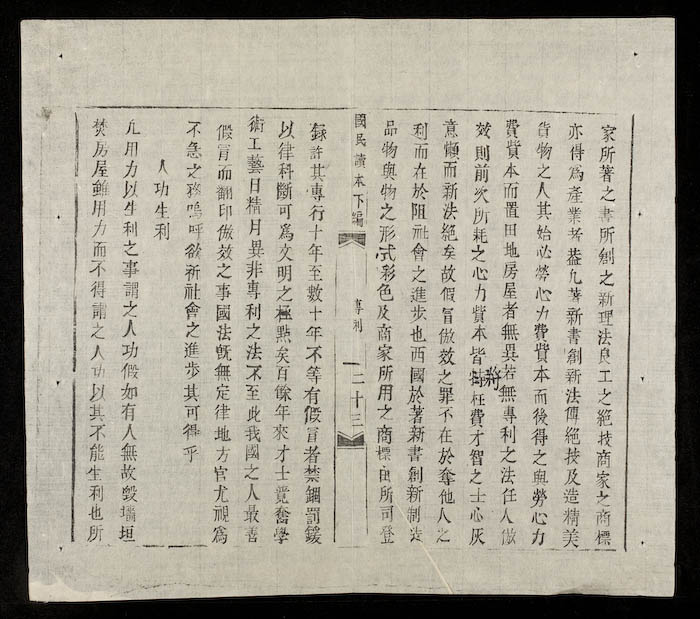 家所著之書所創之新理法良工之絕技商家之商標
亦得爲產業者葢凡著新書創新法傳絕技及造精美
貨物之人其始必勞心力費貲本而後得之與勞心力
費貲本而置田地房屋者無異若無專利之法任人倣
效則前次所耗之心力貲本皆將枉費才智之士心灰
意懶而新法絕矣故假冒倣效之罪不在於奪他人之
利而在於阻社會之進步也西國於著新書創新制造
品物與物之形式彩色及商家所用之商標由所司登
國民讀本下編 專利 二十三
錄許其專行十年至數十年不等有假冒者禁錮罰鍰
以律科斷可爲文明之極點矣百餘年來才士競奮學
術工藝日精月異非專利之法不至此我國之人最善
假冒而翻印倣效之事國法旣無定律地方官尤視爲
不急之務嗚呼欲祈社會之進步其可得乎
人功生利
凡用力以生利之事謂之人功假如有人無故毀墻垣
焚房屋雖用力而不得謂之人功以其不能生利也所